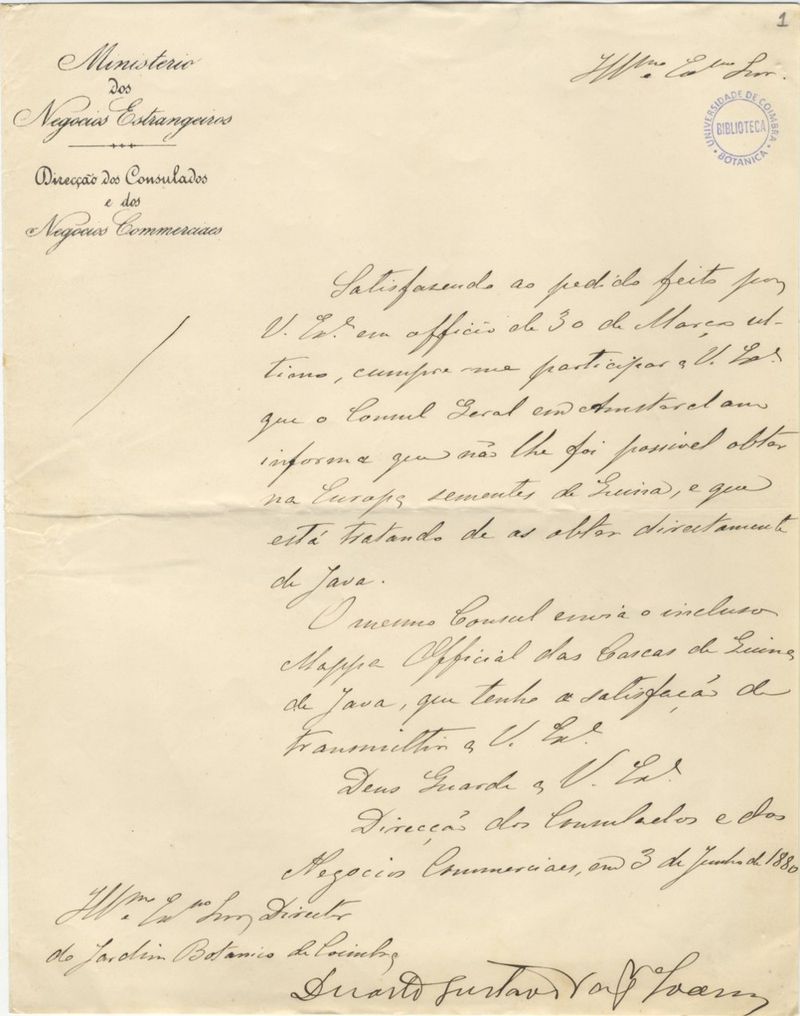 1
Ministerio
dos
Negocios Estrangeiros
Direcção dos Consulados
e dos
Negocios Commerciaes
Illmo e Exmo Snr.
UNIVERSIDADE DE COIMBRA
BIBLIOTECA
BOTANICA
Satisfazendo ao pedido feito por
V. Exª em officio de 30 de Março ul-
timo, cumpre-me participar a V. Exª
que o Consul Geral em Amsterdam
informa que não lhe foi possivel obter
na Europa sementes de Quina, e que
está tratando de as obter directamente
de Java.
O mesmo Consul envia o incluso
Mappa Official das Cascas de Quina
de Java, que tenho a satisfação de
transmittir a V. Exª
Deus Guarde a V. Exª
Direcção dos Consulados e dos
Negocios Commerciaes, em 3 de Junho de 1880
Illmo e Exmo Snr Director
do Jardim Botanico de Coimbra
Duarte Gustavo